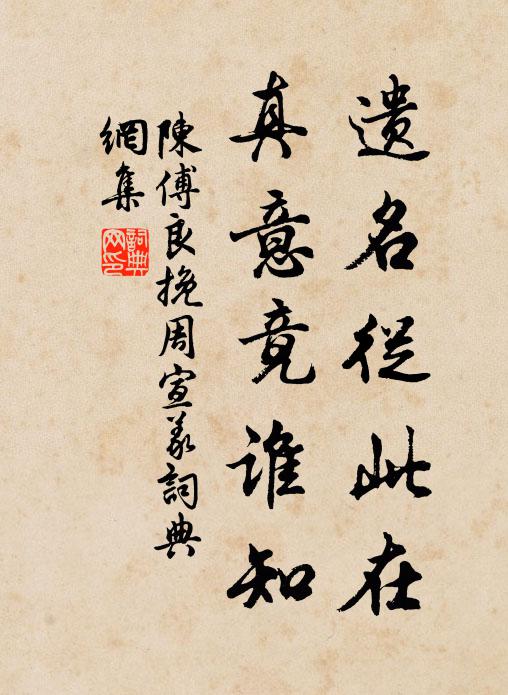 遗名從此在
真意竟谁知
陳傅良挽周宣義詞典
網集
詞典
网印